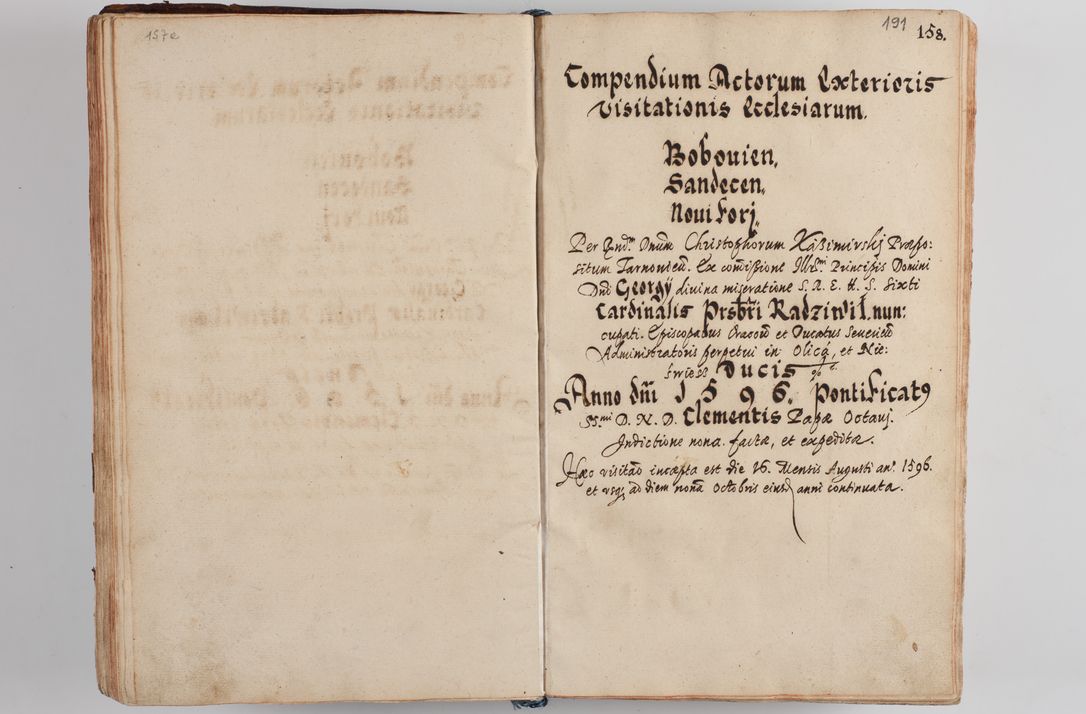 157e
191
158.
Compendium Actorum Exterioris
Visitationis Ecclesiarum.
Bobouien,
Sandecen,
Noui Forj,
Per Rndm Dnum Christophorum Kaßimirskj Præpo:
situm Tarnouieñ. Ex com̃ißione Illrsmi Principis Domini
Dni Georgij diuina miseratione S. R. E. tt. S. Sixti
Cardinalis Prsbri Radziwil, nun:
cupati. Episcopatus Cracoũ et Ducatus Seuerieñ
Administratoris perpetui in Olica, et Nie:
swiess Ducis
Anno dñi 1596. Pontificatꝰ
SSmi D. N. D. Clementis Papæ Octauj.
Indictione nona. factæ, et expeditæ.
Hæc visitão incæpta est die 16. Mensis Augusti an°. 1596.
et vsqꝫ ad diem nonã Octobris eiusd anni continuata.